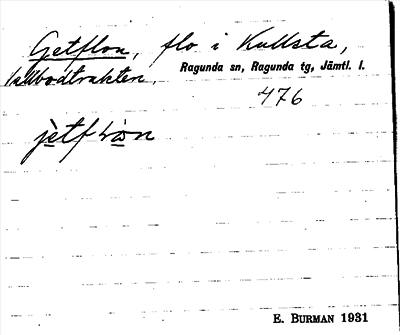 Getflon, flo i Kullsta,
Vallbodtrakten. Ragunda sn, Ragunda tg, Jämtl. l.
476
E. BURMAN 1931